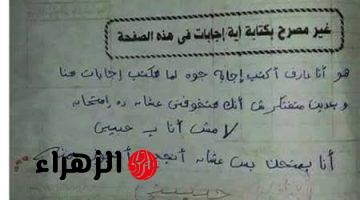 غير مصرح بكتابة أية إجابات فى هذه الصفحة
هو أنا عارف أكتب إجابة جوه لما هكتب إجابات هنا
وبعدين متفتكرش أنك هتخوفنى عشان ده إمتحان
لا مش أنا يا حبيبى
أنا بمتحن بس عشان أنجح
الزهراء